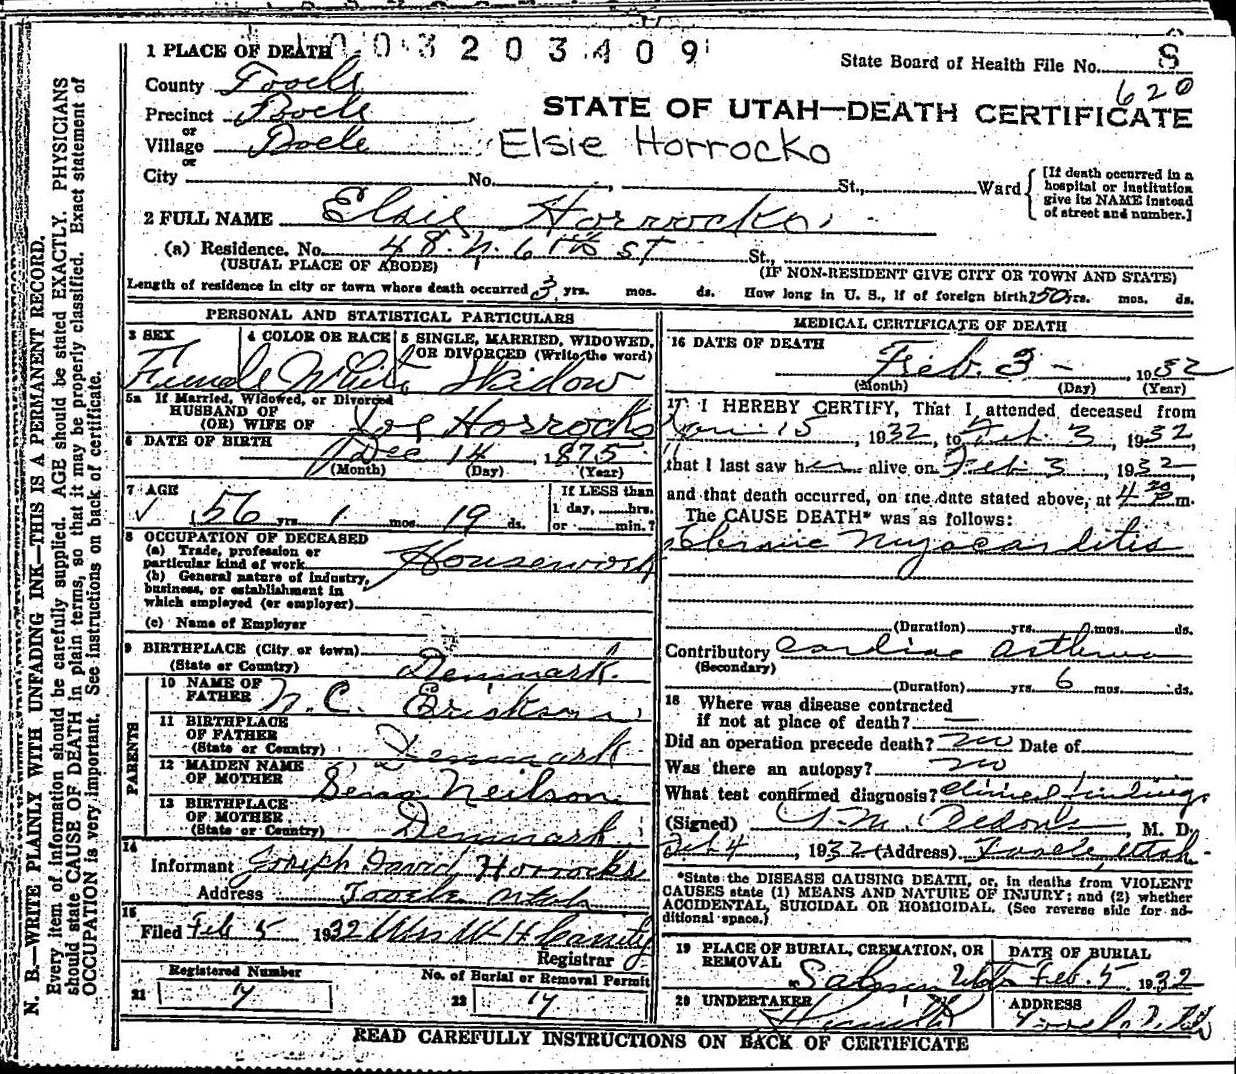 1 PLACE OF DEATH 1003203409
State Board of Health File No. 8
620
County Tooele
STATE OF UTAH—DEATH CERTIFICATE
Precinct Tooele
or
Village Tooele
Elsie Horrocko
or
City No. , St., Ward
[If death occurred in a hospital or institution give its NAME instead of street and number.]
2 FULL NAME Elsie Horrocks
(a) Residence. No. 48 N. 6th ST St.,
(USUAL PLACE OF ABODE) (IF NON-RESIDENT GIVE CITY OR TOWN AND STATE)
Length of residence in city or town where death occurred 3 yrs. mos. ds. How long in U. S., if of foreign birth? 50 yrs. mos. ds.
PERSONAL AND STATISTICAL PARTICULARS
3 SEX 4 COLOR OR RACE 5 SINGLE, MARRIED, WIDOWED, OR DIVORCED (Write the word)
Female White Widow
5a If Married, Widowed, or Divorced
HUSBAND OF
(OR) WIFE OF Joe Horrocks
6 DATE OF BIRTH
Dec 14, 1875
(Month) (Day) (Year)
7 AGE
56 yrs. 1 mos. 19 ds.
If LESS than
1 day, hrs.
or min.?
8 OCCUPATION OF DECEASED
(a) Trade, profession or
particular kind of work Housework
(b) General nature of industry,
business, or establishment in
which employed (or employer)
(c) Name of Employer
9 BIRTHPLACE (City or town)
(State or Country) Denmark.
PARENTS
10 NAME OF
FATHER N. C.
11 BIRTHPLACE
OF FATHER
(State or Country) Denmark
12 MAIDEN NAME
OF MOTHER Neilson
13 BIRTHPLACE
OF MOTHER
(State or Country) Denmark.
14
Informant Joseph David Horrocks
Address Tooele Utah
15
Filed Feb 5 1932
Registrar
Registered Number
21 7
No. of Burial or Removal Permit
22 17
MEDICAL CERTIFICATE OF DEATH
16 DATE OF DEATH
Feb. 3 - 1932
(Month) (Day) (Year)
17 I HEREBY CERTIFY, That I attended deceased from
Jan. 15, 1932, to Feb. 3, 1932,
that I last saw her alive on Feb 3, 1932
and that death occurred, on the date stated above, at 4 P.m.
The CAUSE DEATH* was as follows:
Chronic Myocarditis
(Duration) yrs. mos. ds.
Contributory Cardiac Asthma
(Secondary)
(Duration) yrs. 6 mos. ds.
18 Where was disease contracted
if not at place of death? —
Did an operation precede death? no Date of
Was there an autopsy? no
What test confirmed diagnosis? Clinical findings
(Signed) , M. D.
Feb 4, 1932 (Address) Tooele, Utah.
*State the DISEASE CAUSING DEATH, or, in deaths from VIOLENT
CAUSES state (1) MEANS AND NATURE OF INJURY; and (2) whether
ACCIDENTAL, SUICIDAL OR HOMICIDAL. (See reverse side for ad-
ditional space.)
19 PLACE OF BURIAL, CREMATION, OR
REMOVAL
DATE OF BURIAL
Feb. 5 1932
20 UNDERTAKER
ADDRESS
READ CAREFULLY INSTRUCTIONS ON BACK OF CERTIFICATE
N. B.—WRITE PLAINLY WITH UNFADING INK—THIS IS A PERMANENT RECORD.
Every item of information should be carefully supplied. AGE should be stated EXACTLY. PHYSICIANS
should state CAUSE OF DEATH in plain terms, so that it may be properly classified. Exact statement of
OCCUPATION is very important. See instructions on back of certificate.